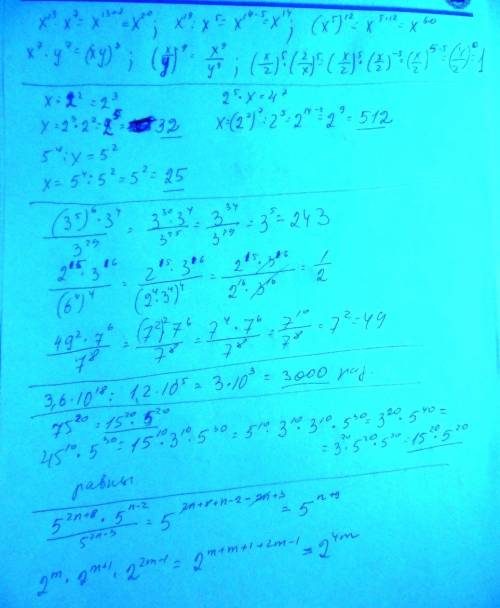 x¹³·x⁷=x¹³⁺⁷=x²⁰; x¹⁹:x⁵=x¹⁹⁻⁵=x¹⁴; (x⁵)¹²=x⁵·¹²=x⁶⁰
x⁷·y⁷=(xy)⁷; (x/y)⁹=x⁹/y⁹;
x:2²=2³ 2⁵·x=4⁷
x=2³·2²=2⁵=32 x=(2²)⁷:2⁵=2¹⁴⁻⁵=2⁹=512
5⁴:x=5²
x=5⁴:5²=5²=25
(3⁵)⁶·3⁴/3²⁹=3³⁰·3⁴/3²⁹=3³⁴/3²⁹=3⁵=243
2¹⁵·3¹⁶/(6⁴)⁴=2¹⁵·3¹⁶/(2⁴·3⁴)⁴=2¹⁵·3¹⁶/2¹⁶·3¹⁶=1/2
49²·7⁶/7⁸=(7²)²·7⁶/7⁸=7⁴·7⁶/7⁸=7¹⁰/7⁸=7²=49
3,6·10¹⁸: 1,2·10⁵=3·10³=3000 раз.
75²⁰=15²⁰·5²⁰
45¹⁰·5³⁰=15¹⁰·3¹⁰·5³⁰=5¹⁰·3¹⁰·3¹⁰·5³⁰=3²⁰·5⁴⁰=
=3²⁰·5²⁰·5²⁰=15²⁰·5²⁰
равны
5²ⁿ⁺⁸·5ⁿ⁻²/5²ⁿ⁻³=5²ⁿ⁺⁸⁺ⁿ⁻²⁻²ⁿ⁺³=5ⁿ⁺⁹
2ᵐ·2ᵐ⁺¹·2²ᵐ⁻¹=2ᵐ⁺ᵐ⁺¹⁺²ᵐ⁻¹=2⁴ᵐ